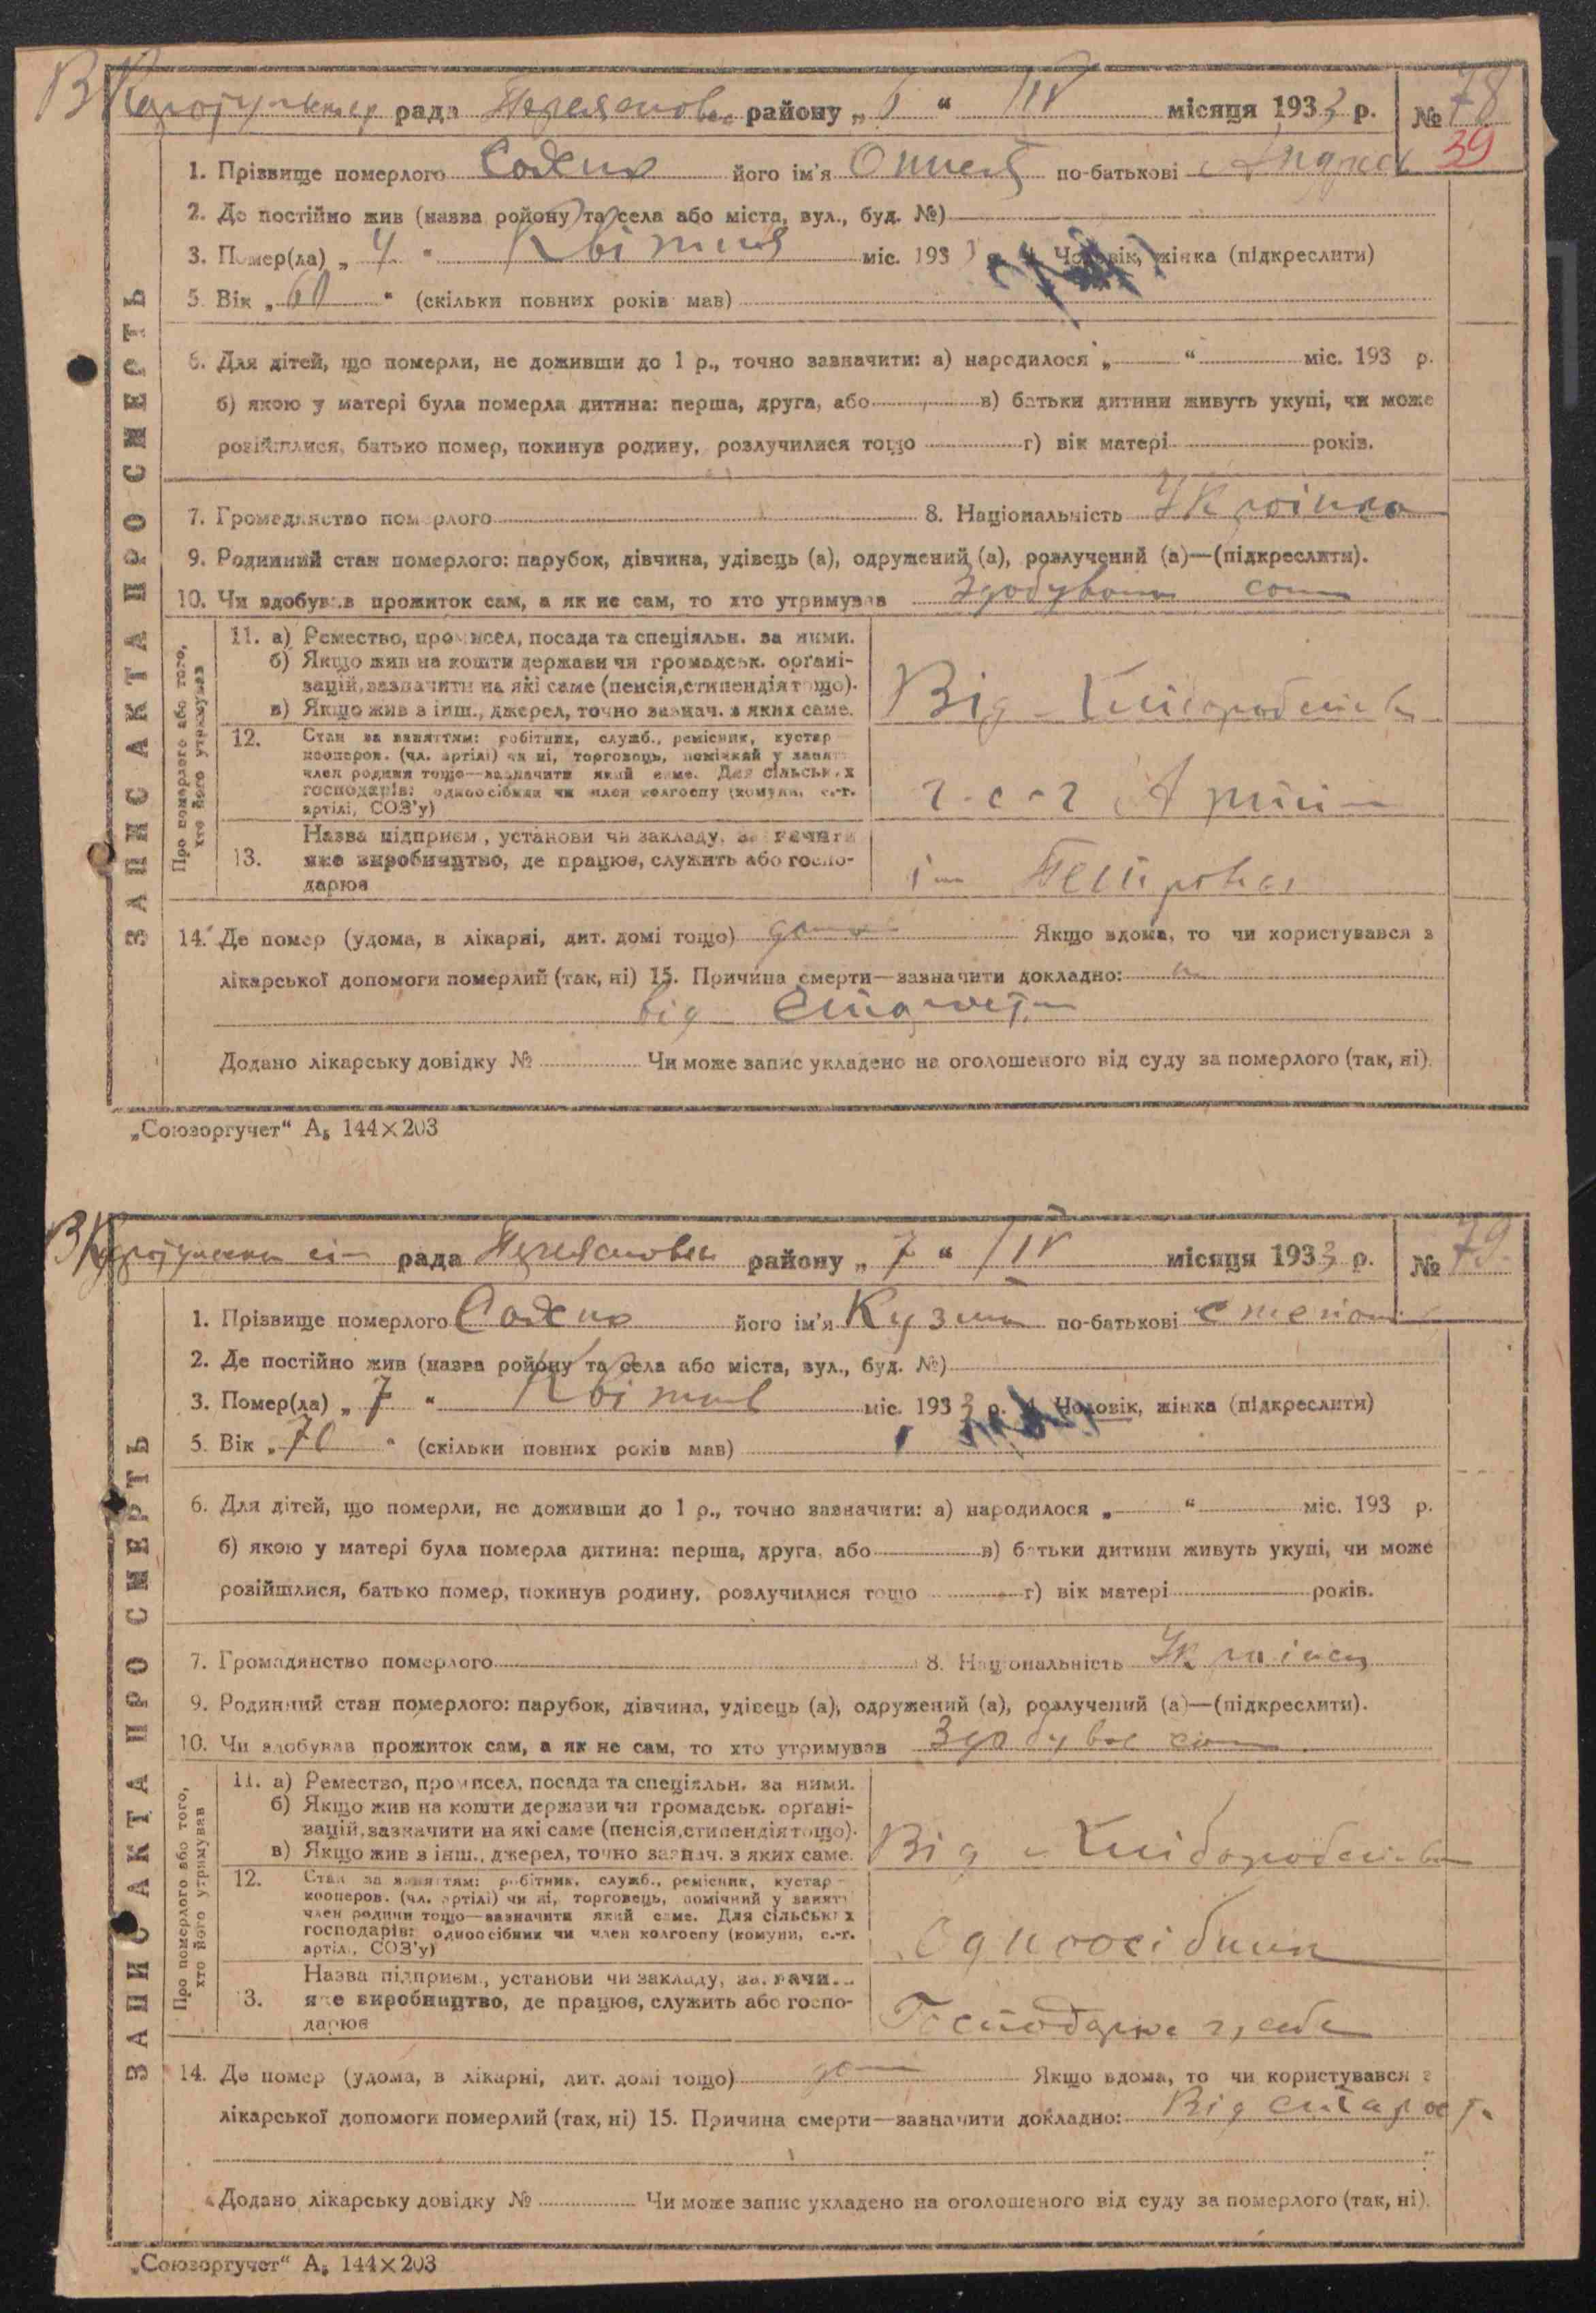 рада району „ “ IV місяця 1933 р. № 78
39
1. Прізвище померлого його ім'я по-батькові
2. Де постійно жив (назва ройону та села або міста, вул., буд. №)
3. Помер(ла) „ 4 “ Квітня міс. 193 Чоловік, жінка (підкреслити)
5. Вік „ 60 “ (скільки повних років мав)
6. Для дітей, що померли, не доживши до 1 р., точно зазначити: а) народилося „ “ міс. 193 р.
б) якою у матері була померла дитина: перша, друга, або в) батьки дитини живуть укупі, чи може
розійшлися, батько помер, покинув родину, розлучилися тощо г) вік матері років.
7. Громадянство померлого 8. Національність
9. Родинний стан померлого: парубок, дівчина, удівець (а), одружений (а), розлучений (а)—(підкреслити).
10. Чи здобував прожиток сам, а як не сам, то хто утримував
Про померлого або того, хто його утримував
11. а) Ремество, промисел, посада та спеціяльн. за ними.
б) Якщо жив на кошти держави чи громадськ. орґані-
зацій, зазначити на які саме (пенсія, стипендія тощо).
в) Якщо жив з інш., джерел, точно зазнач. з яких саме.
Від Хліборобства
12. Стан за заняттям: робітник, служб., ремісник, кустар
кооперов. (чл. артілі) чи ні, торговець, помічний у занят
член родини тощо—зазначити який саме. Для сільських
господарів: одноосібник чи член колгоспу (комуни, с.-г.
артілі, СОЗ'у)
13. Назва підприєм., установи чи закладу, зазначити
яке виробництво, де працює, служить або госпо-
дарює
ім Петровсь
14. Де помер (удома, в лікарні, дит. домі тощо) дома Якщо вдома, то чи користувався з
лікарської допомоги померлий (так, ні) 15. Причина смерти—зазначити докладно:
від старості
Додано лікарську довідку № Чи може запис укладено на оголошеного від суду за померлого (так, ні).
ЗАПИС АКТА ПРО СМЕРТЬ
„Союзоргучет“ А₅ 144×203
рада району „ 7 “ IV місяця 1933 р. № 79
1. Прізвище померлого його ім'я Кузьма по-батькові
2. Де постійно жив (назва ройону та села або міста, вул., буд. №)
3. Помер(ла) „ 7 “ Квітня міс. 1933 р. Чоловік, жінка (підкреслити)
5. Вік „ 70 “ (скільки повних років мав)
6. Для дітей, що померли, не доживши до 1 р., точно зазначити: а) народилося „ “ міс. 193 р.
б) якою у матері була померла дитина: перша, друга, або в) батьки дитини живуть укупі, чи може
розійшлися, батько помер, покинув родину, розлучилися тощо г) вік матері років.
7. Громадянство померлого 8. Національність
9. Родинний стан померлого: парубок, дівчина, удівець (а), одружений (а), розлучений (а)—(підкреслити).
10. Чи здобував прожиток сам, а як не сам, то хто утримував Здобував сам
Про померлого або того, хто його утримував
11. а) Ремество, промисел, посада та спеціяльн. за ними.
б) Якщо жив на кошти держави чи громадськ. орґані-
зацій, зазначити на які саме (пенсія, стипендія тощо).
в) Якщо жив з інш., джерел, точно зазнач. з яких саме.
Від Хліборобства
12. Стан за заняттям: робітник, служб., ремісник, кустар
кооперов. (чл. артілі) чи ні, торговець, помічний у занят
член родини тощо—зазначити який саме. Для сільських
господарів: одноосібник чи член колгоспу (комуни, с.-г.
артілі, СОЗ'у)
Одноосібник
13. Назва підприєм., установи чи закладу, зазначити
яке виробництво, де працює, служить або госпо-
дарює
14. Де помер (удома, в лікарні, дит. домі тощо) Якщо вдома, то чи користувався з
лікарської допомоги померлий (так, ні) 15. Причина смерти—зазначити докладно: Від старост.
Додано лікарську довідку № Чи може запис укладено на оголошеного від суду за померлого (так, ні).
ЗАПИС АКТА ПРО СМЕРТЬ
„Союзоргучет“ А₅ 144×203